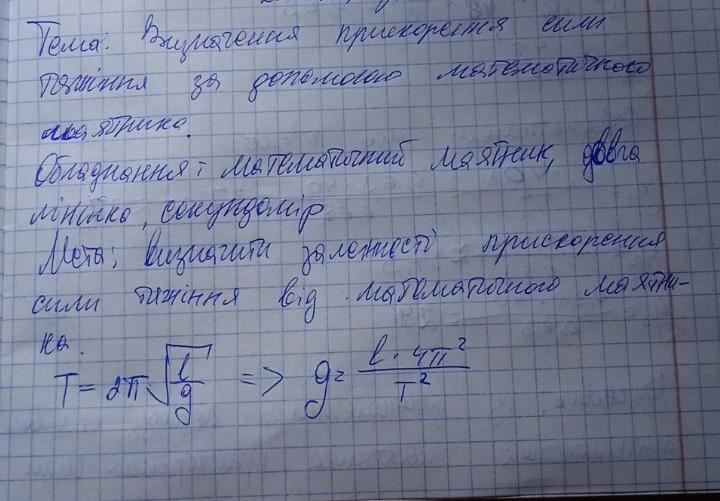 Тема: Визначення прискорення сили
тяжіння за допомогою математичного
маятника.
Обладнання: математичний маятник, довга
лінійка, секундомір
Мета: Визначити залежності прискорення
сили тяжіння від математичного маятни-
ка.
T = 2π√(l/g) => g = l · 4π² / T²